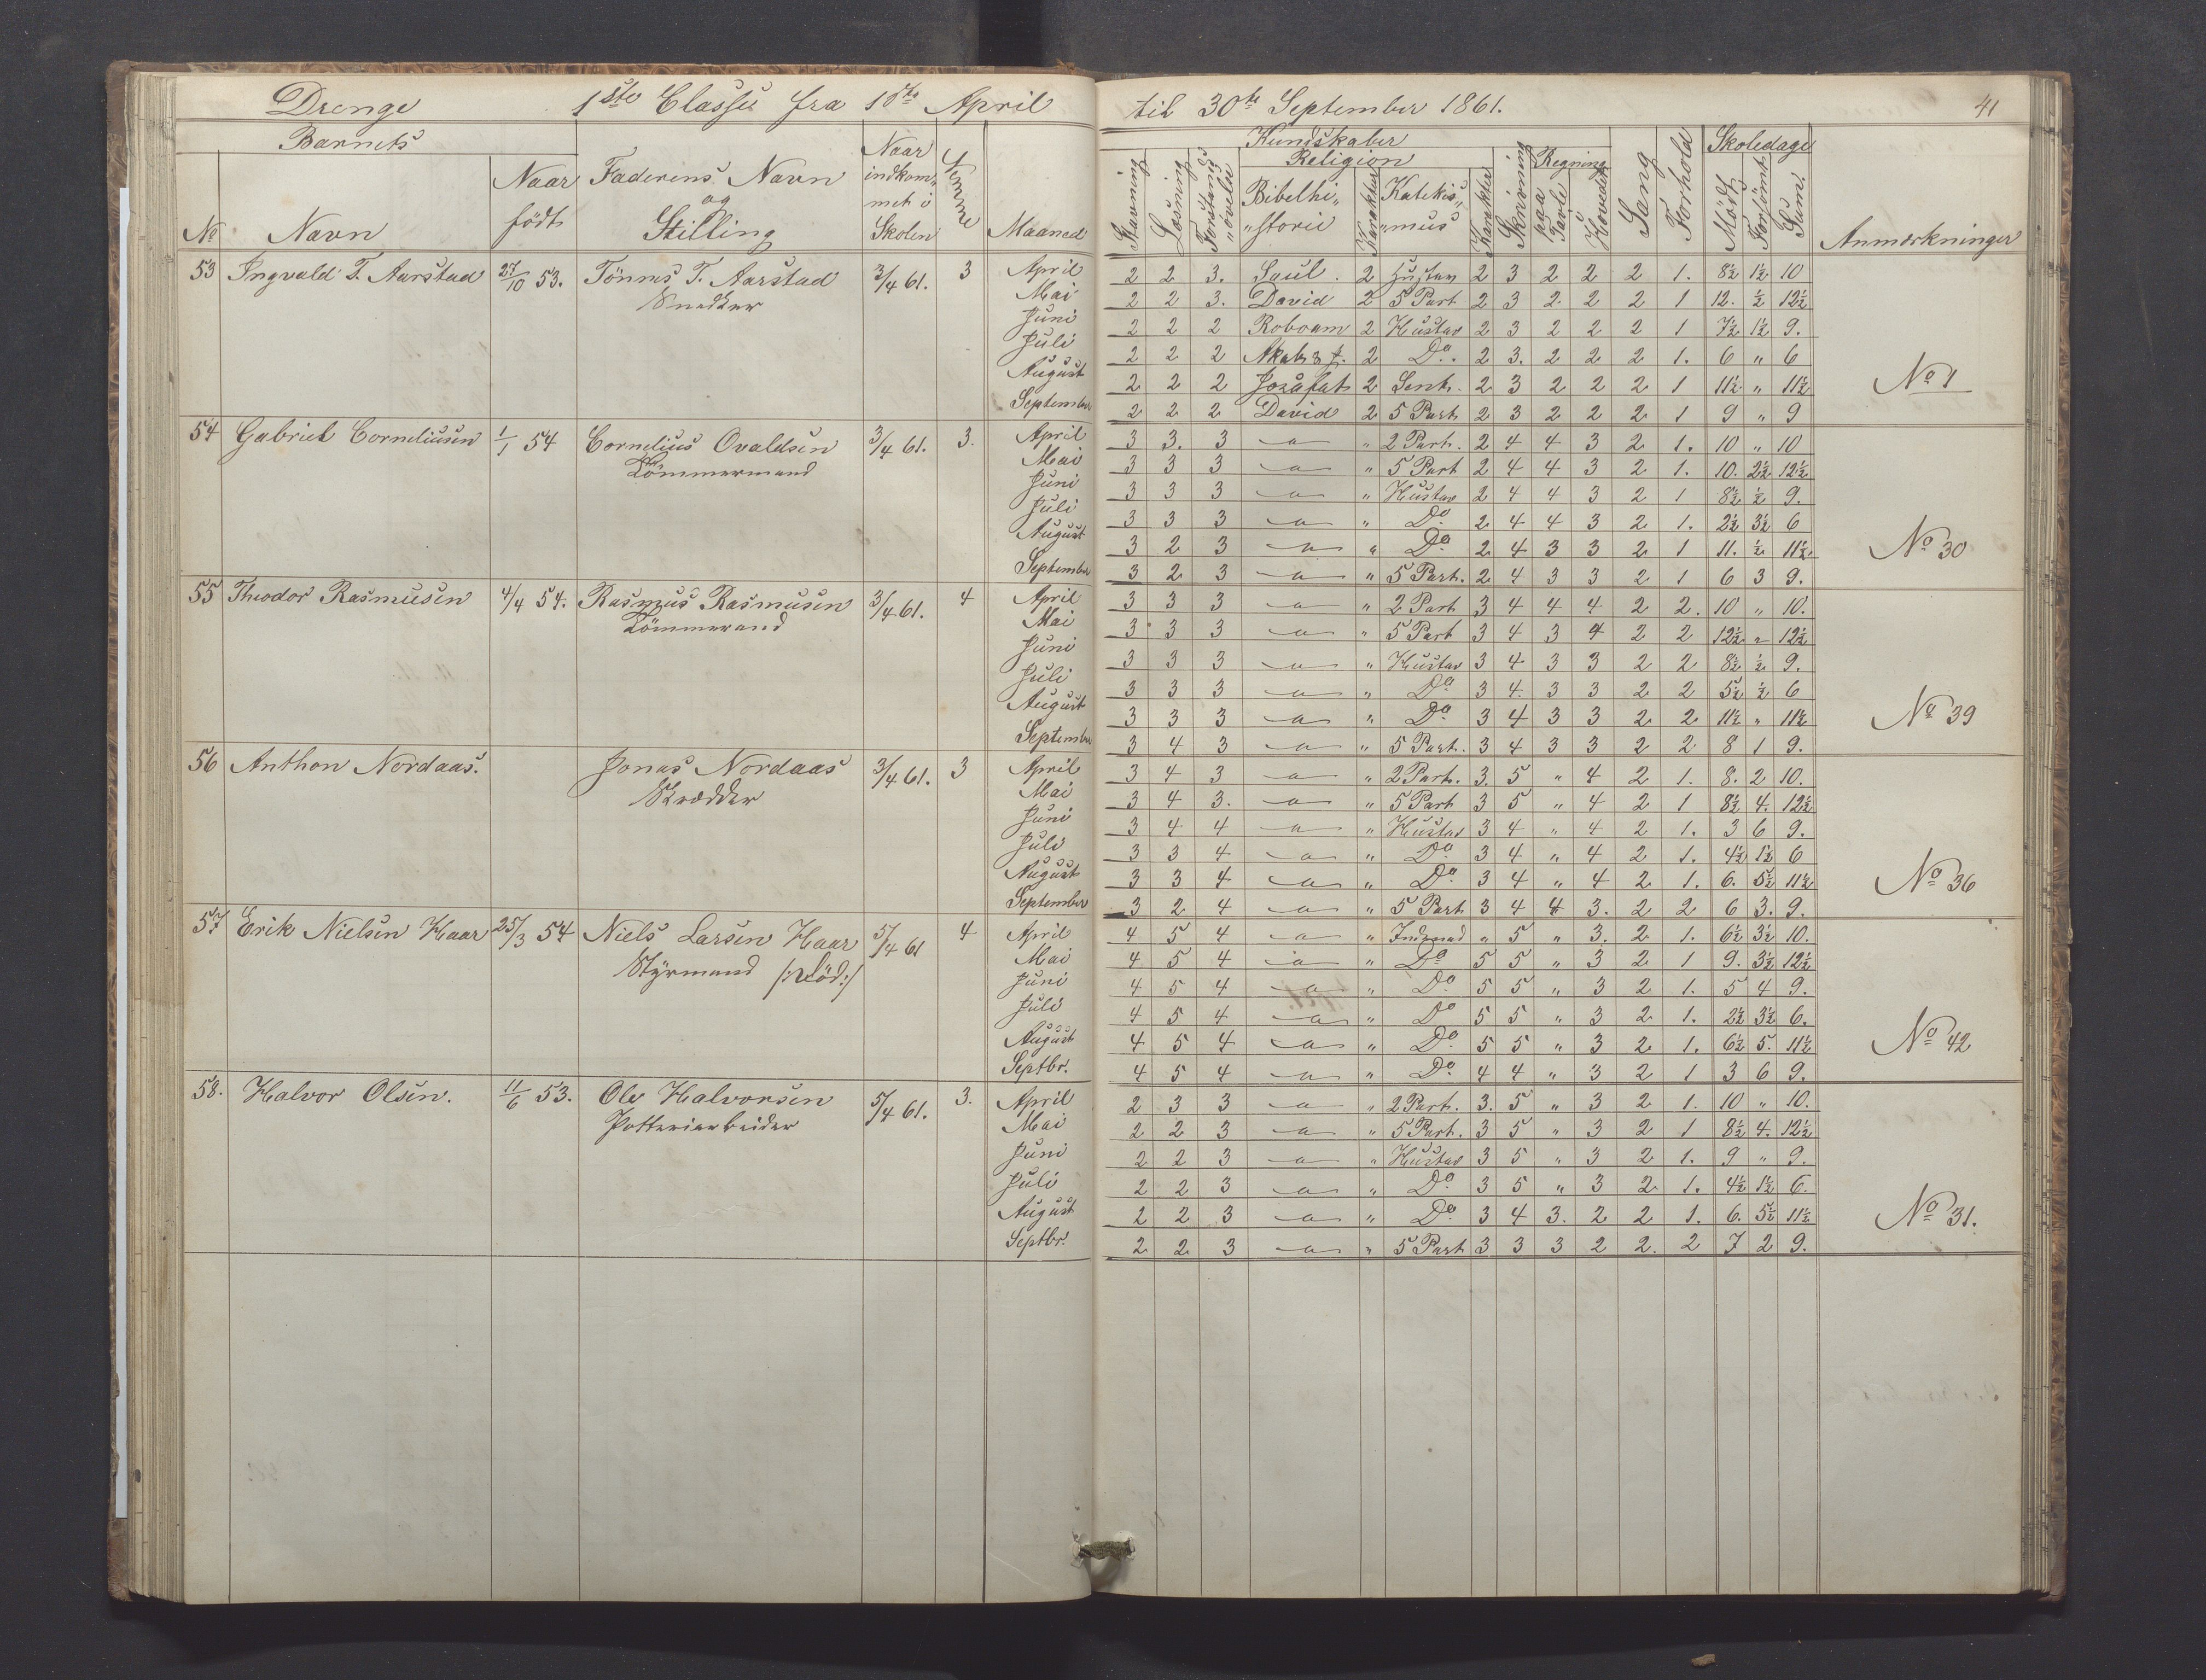 Drenge 1ste Classe fra 1ste April til 30te September 1861. 41
Barnets
Kundskaber Skoledage
Religion Regning
No Navn Naar født Faderens Navn og Stilling Naar indkommet i Skolen Stemme Maaned Stavning Læsning Forstands„ „øvelse Bibelhi„ „storie Karakter Katekis„ „mus Karakter Skrivning paa Tavle Hovedet Sang Forhold Mødt Forsømt Sum. Anmærkninger
53 Ingvald T. Aarstad 27/10 53. Tönnes T. Aarstad 3/4 61. 3 April 2 2 3. Saul. 2 2 3 2 2 2 1. 8½ 1½ 10
Snedker Mai 2 2 3. David 2 5 Part 2 3 2. 2 2 1 12. ½ 12½
Juni 2 2 2 Roboam 2 Hustav 2 3 2 2 2 1 7½ 1½ 9.
Juli 2 2 2 2 Do. 2 3. 2 2 2 1. 6 „ 6
August 2 2 2 Josafat 2 2 3 2 2 2 1 11½ „ 11½ No 1
September 2 2 2 David 2 5 Part 2 3 2 2 2 1 9 „ 9
54 Gabriel Corneliusen 1/1 54 Cornelius Ovaldsen 3/4 61. 3. April 3 3. 3 „ 2 Part. 2 4 4 3 2 1. 10 „ 10
Tömmermand Mai 3 3 3 „ 5 Part 2 4 4 3 2 1. 10. 2½ 12½
Juni 3 3 3 „ Hustav 2 4 4 3 2 1 8½ ½ 9.
Juli 3 3 3 „ Do 2 4 4 3 2 1. 2½ 3½ 6
August 3 2 3 „ Do 2 4 3 3 2 1 11. ½ 11½ No 30
September 3 2 3 „ 5 Part. 2 4 3 3 2 1 6 3 9.
55 Theodor Rasmusen 4/4 54. Rasmus Rasmusen 3/4 61. 4 April 3 3 3 „ 2 Part 3 4 4 4 2 2. 10 „ 10.
Tömmerand Mai 3 3 3 „ 5 Part 3 4 3 4 2 2 12½ „ 12½
Juni 3 3 3 „ Hustav 3 4 3 3 2 2 8½ ½ 9.
Juli 3 3 3 „ Do 3 4. 3 3 2 2 5½ ½ 6
August 3 3 3 „ Do 3 4 3 3 2 2 11½ „ 11½ No 39
September 3 4 3 „ 5 Part. 3 4 3 3 2 2 8 1 9.
56 Anthon Nordaas. Jonas Nordaas 3/4 61. 3 April 3 4 3 „ 2 Part. 3. 5 „ 4 2 1. 8. 2 10.
Skrædder Mai 3 4 3. „ 5 Part 3 5 „ 4 2 1 8½ 4. 12½
Juni 3 4 4 „ Hustav 3 4 „ 4 2 1. 3 6 9.
Juli 3 3 4 „ Do 3 4 „ 4 2 1. 4½ 1½ 6
August 3 3 4 „ Do 3 4 „ 4 2 1. 6. 5½ 11½ No 36
September 3 2 4 „ 5 Part 3 4 4 3. 2 2 6 3. 9.
57 Erik Nielsen Haar 25/3 54 Niels Larsen Haar 5/4 61 4 April 4 5 4 „ „ 5 „ 3. 2 1. 6½ 3½ 10.
Styrmand /: död :/ Mai 4 5 4 „ Do 5 5 „ 3 2 1 9. 3½ 12½
Juni 4 5 4 „ Do 5 5 „ 3 2 1. 5 4 9.
Juli 4 5 4 „ Do 5 5 „ 3 2 1. 2½ 3½ 6.
August 4 5 4 „ Do 5 5 „ 3 2 1. 6½ 5. 11½ No 42
Septbr. 4 5 4 „ Do 4 4 „ 3 2 1 3 6 9.
58. Halvor Olsen. 11/6 53. Ole Halvorsen 5/4 61. 3. April 2 3 3 „ 2 Part. 3. 5 „ 3 2 1. 10 „ 10.
Potteriarbeider Mai 2 2 3 „ 5 Part. 3 5 „ 3 2 1 8½ 4. 12½
Juni 2 2 3 „ Hustav 3 5 „ 3 2 1. 9 „ 9.
Juli 2 2 3 „ Do 3 5 „ 3 2 1. 4½ 1½ 6.
August 2 2 3 „ Do 3 4 3. 2 2 1. 6. 5½ 11½ No 31.
Septbr. 2 2 3 „ 5 Part 3 3 3 2 2. 2 7 2 9.